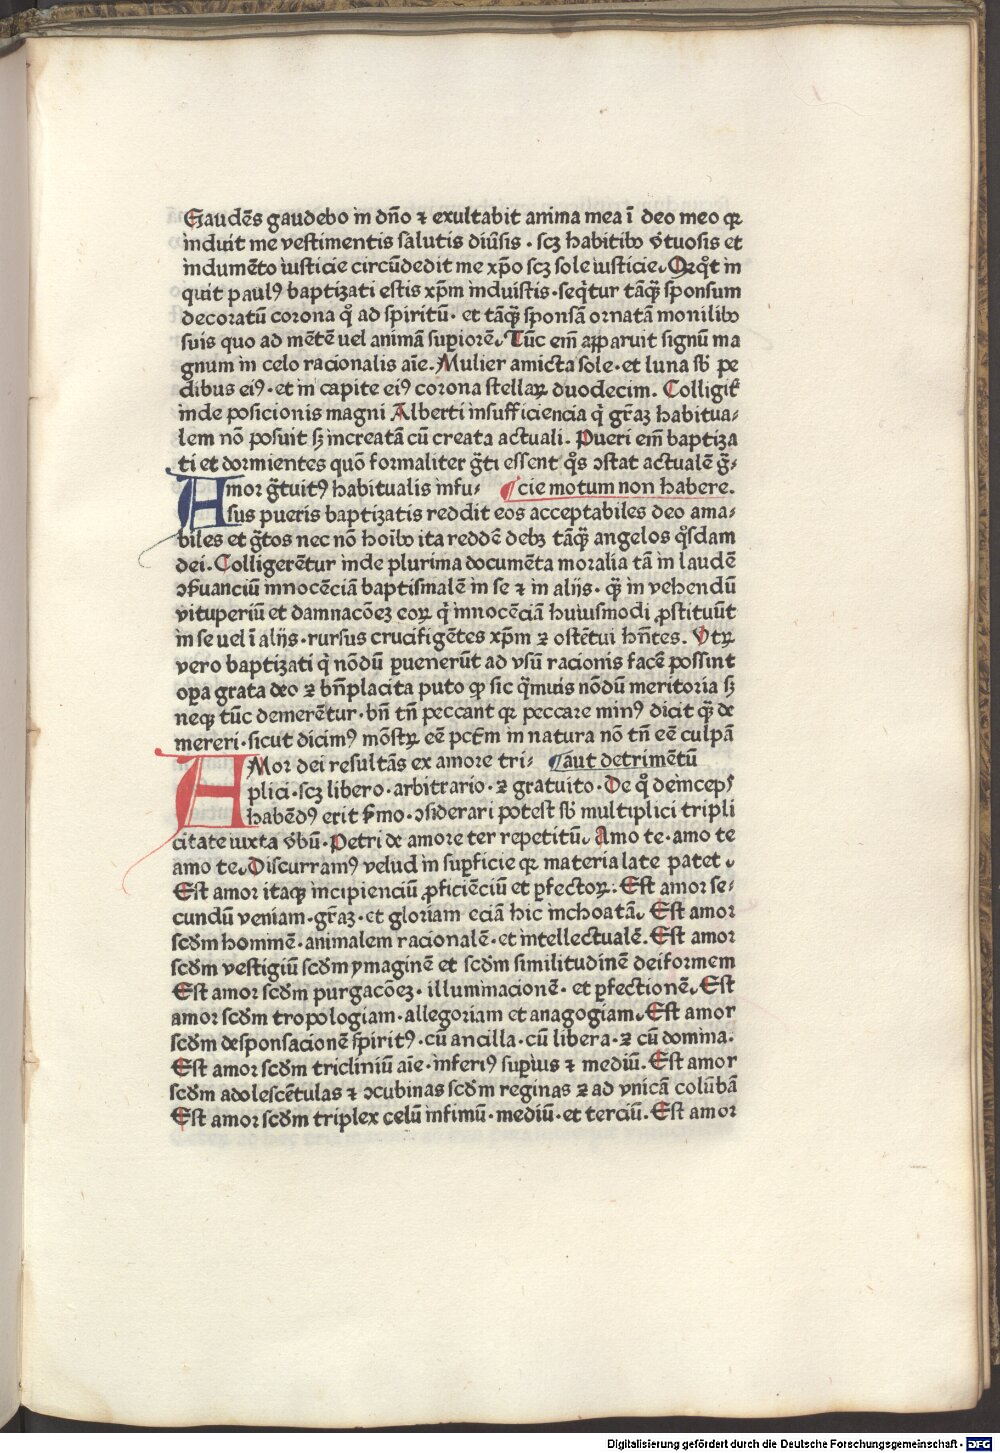 Gaudēs gaudebo in dño ⁊ exultabit anima mea ī deo meo qꝛ
induit me vestimentis salutis diūsis · scꝫ habitibꝰ v̄tuosis et
indumēto iusticie circūdedit me xp̄o scꝫ sole iusticie. Qꝛ qͦt in
quit paulꝰ baptizati estis xp̄m induistis · seq̄tur tāqꝫ sponsum
decoratū corona qͦ ad spiritū · et tāqꝫ sponsā ornatā monilibꝰ
suis quo ad mētē uel animā supiorē. Tūc em̄ apparuit signū ma
gnum in celo racionalis aīe. Mulier amicta sole · et luna sb̄ pe
dibus eiꝰ · et in capite eiꝰ corona stellaꝝ duodecim. Colligit᷑
inde posicionis magni Alberti insufficiencia q̇ gr̄aꝫ habitua⸗
lem nō posuit sꝫ increatā cū creata actuali. Pueri em̄ baptiza
ti et dormientes quō formaliter g̃ti essent qͦs ɔstat actualē g̃⸗
Amor g̃tuitꝰ habitualis infu⸗ ¶cie motum non habere.
sus pueris baptizatis reddit eos acceptabiles deo ama⸗
biles et g̃tos nec nō hoibꝰ ita reddē debꝫ tāqꝫ angelos qͦsdam
dei. Colligerētur inde plurima documēta moralia tā in laudē
ɔẜuanciū innocēciā baptismalē in se ⁊ in alijs · qꝫ in vehendū
vituperiū et damnacōeꝫ eoꝝ q̇ innocēciā huiusmodi ꝓstituūt
in se uel ī alijs · rursus crucifigētes xp̄m ⁊ ostētui hñtes. Vtꝝ
vero baptizati q̇ nōdū ꝑuenerūt ad vsū racionis facē possint
oꝑa grata deo ⁊ bñplacita puto ꝙ sic q̃muis nōdū meritoria sꝫ
neqꝫ tūc demerētur · bñ tñ peccant qꝛ peccare minꝰ dicit qꝫ de
mereri · sicut dicimꝰ mōstꝝ eē pctm̄ in natura nō tñ eē culpā
AMor dei resultās ex amore tri⸗ ¶aut detrimētū
plici · scꝫ libero · arbitrario · ⁊ gratuito. De qͦ deinceps
habēdꝰ erit ẜmo · ɔsiderari potest sb̄ multiplici tripli
citate iuxta v̄bū · Petri de amore ter repetitū. Amo te · amo te
amo te. Discurramꝰ velud in suꝑficie qꝛ materia late patet .
Est amor itaqꝫ incipienciū ꝓficiēciū et ꝑfectoꝝ. Est amor se⸗
cundū veniam · gr̄aꝫ · et gloriam eciā hic inchoatā. Est amor
scd̄m hominē · animalem racionalē · et intellectualē. Est amor
scd̄m vestigiū scd̄m ymaginē et scd̄m similitudinē deiformem
Est amor scd̄m purgacōeꝫ · illuminacionē · et ꝑfectionē. Est
amor scd̄m tropologiam · allegoriam et anagogiam. Est amor
scd̄m desponsacionē spiritꝰ · cū ancilla · cū libera · ⁊ cū domina.
Est amor scd̄m tricliniū aīe · inferiꝰ supius ⁊ mediū. Est amor
scd̄m adolescētulas ⁊ ɔcubinas scd̄m reginas ⁊ ad vnicā colūbā
Est amor scd̄m triplex celū infimū · mediū · et terciū. Est amor
Digitalisierung gefördert durch die Deutsche Forschungsgemeinschaft - DFG